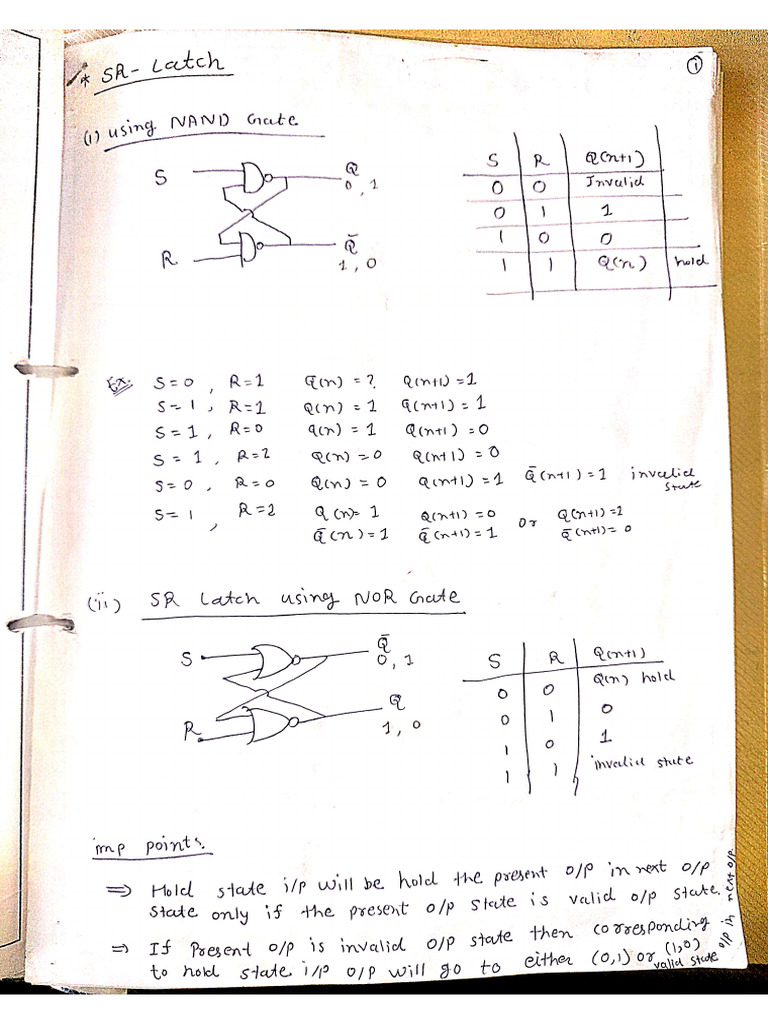 * SR-Latch
1
(i) using NAND Gate
S
Q
0, 1
R
Q̄
1, 0
S R Q(n+1)
0 0 Invalid
0 1 1
1 0 0
1 1 Q(n) hold
Ex. S=0, R=1 Q(n) = ? Q(n+1) = 1
S=1, R=1 Q(n) = 1 Q(n+1) = 1
S=1, R=0 Q(n) = 1 Q(n+1) = 0
S=1, R=1 Q(n) = 0 Q(n+1) = 0
S=0, R=0 Q(n) = 0 Q(n+1) = 1 Q̄(n+1) = 1 invalid state
S=1, R=1 Q(n) = 1 Q(n+1) = 0 or Q(n+1) = 1
Q̄(n) = 1 Q̄(n+1) = 1 Q̄(n+1) = 0
(ii) SR Latch using NOR Gate
S
Q̄
0, 1
R
Q
1, 0
S R Q(n+1)
0 0 Q(n) hold
0 1 0
1 0 1
1 1 invalid state
imp points.
⇒ Hold state i/p will be hold the present o/p in next o/p
state only if the present o/p state is valid o/p state.
⇒ If Present o/p is invalid o/p state then corresponding
to hold state i/p o/p will go to either (0,1) or (1,0)
valid state o/p in next o/p.